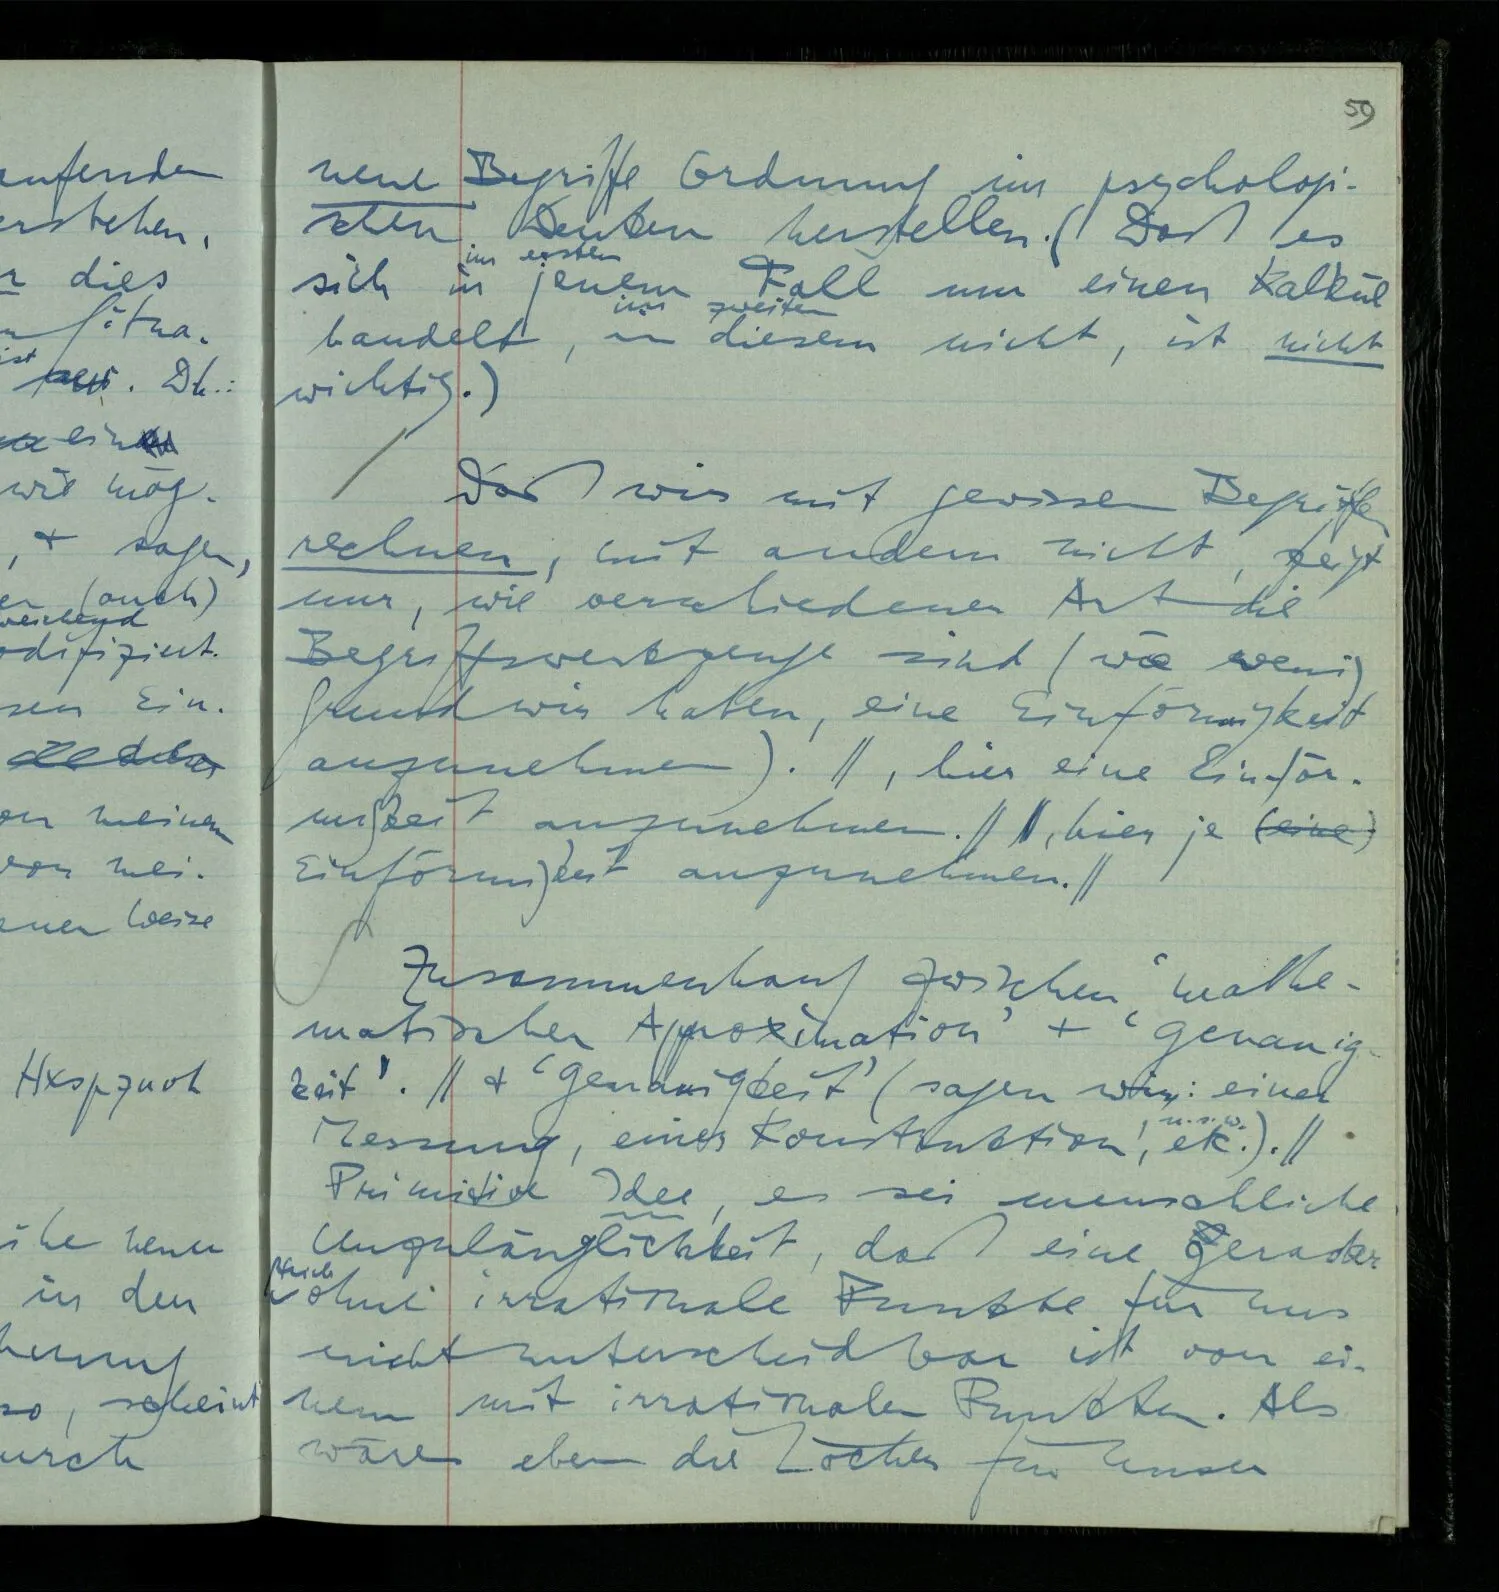 aufenden
erstehen,
r dies
n Situa-
ist
. Dh.:
ein
wie mög-
, + sagen,
er (auch)
weichend
odifiziert.
sen Ein-
on meinem
von mei-
ener Weise
Hxspzuoh
in den
so, scheint
urch
59
neue Begriffe Ordnung im psychologi-
schen Denken herstellen. (Daß es
im ersten
sich in jenem Fall um einen Kalkül
im zweiten
handelt, in diesem nicht, ist nicht
wichtig.)
Daß wir mit gewissen Begriffen
rechnen, mit andern nicht, zeigt
nur, wie verschiedener Art die
Begriffswerkzeuge sind (wie wenig
Grund wir haben, eine Einförmigkeit
anzunehmen). //, hier eine Einför-
migkeit anzunehmen.// //, hier je (eine)
Einförmigkeit anzunehmen.//
Zusammenhang zwischen ‘mathe-
matischer Approximation’ + ‘Genauig-
keit’. // + ‘Genauigkeit’ (sagen wir: einer
, u.s.w.
Messung, einer Konstruktion, etc.).//
Primitive Idee, es sei menschliche
Unzulänglichkeit, daß eine Gerader
Strich
ohne irrationale Punkte für uns
nicht unterscheidbar ist von ei-
nem mit irrationalen Punkten. Als
wären eben die Löcher für unser